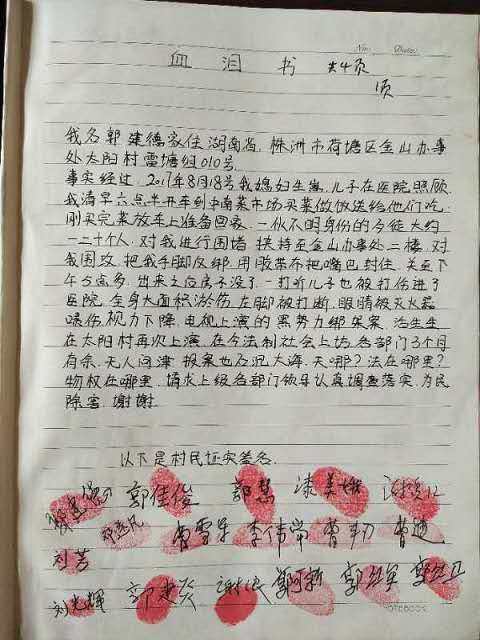 No. Date.
血 泪 书 共4页
页
我名郭建德家住湖南省,株洲市荷塘区金山办事
处太阳村雷塘组010号.
事实经过,2017年8月18号我媳妇生崽,儿子在医院照顾
我清早六点半开车到中南菜市场买菜做饭送给他们吃.
刚买完菜放车上准备回家.一伙不明身份的歹徒大约
一二十个人.对我进行围堵 挟持至金山办事处二楼.对
我围攻.把我手脚反绑.用胶带布把嘴巴封住.关至下
午5点多.出来之后房子没了.一打听儿子也被打伤进了
医院.全身大面积淤伤.左脚被打断.眼睛被灭火器
喷伤视力下降.电视上演的黑势力绑架案.活生生
在太阳村再次上演.在今法制社会上访各部门3个月
有余.无人问津 报案也石沉大海.天哪?法在哪里?
物权在哪里.请求上级各部门领导认真调查落实.为民
除害.谢谢.
以下是村民证实签名.
郭佳俊 郭慧 漆美娥
曾雪乐 李伟常 曾
刘芳
刘光辉 郭建
NOTEBOOK